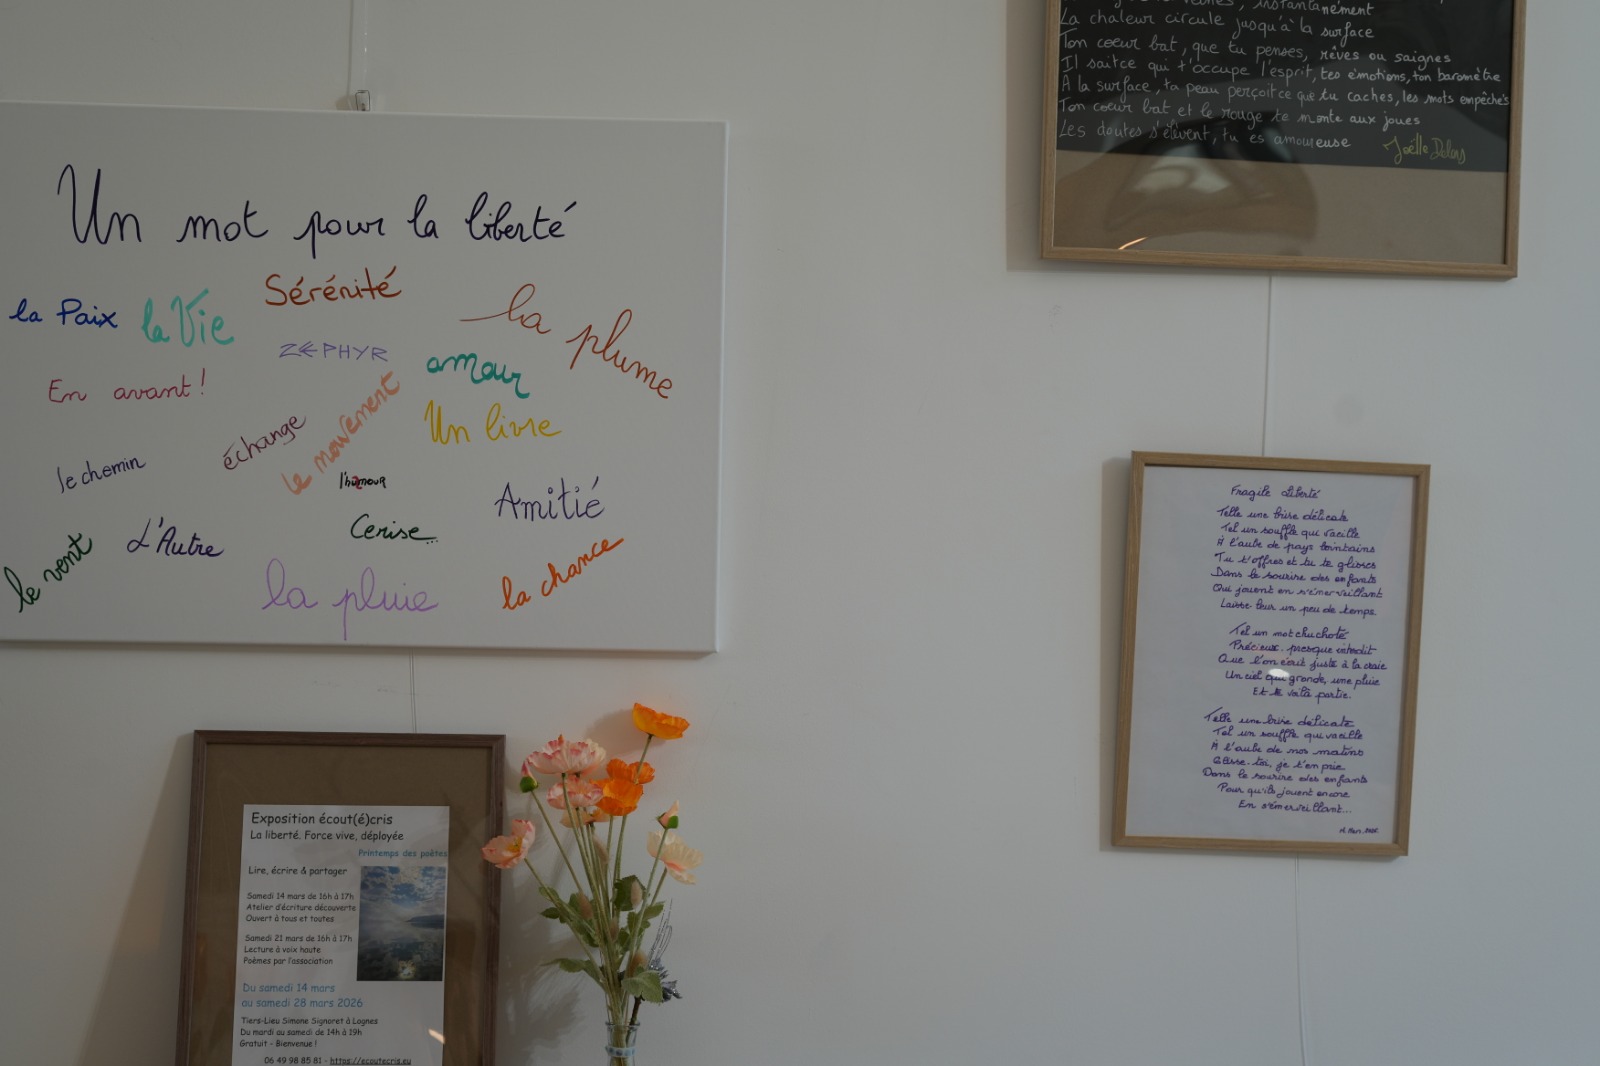 Un mot pour la liberté
la Paix
la Vie
Sérénité
la plume
ZEPHYR
amour
En avant !
échange
le mouvement
Un livre
le chemin
l'humour
Amitié
L'Autre
Cerise...
le vent
la pluie
la chance
Exposition écout(é)cris
La liberté. Force vive, déployée
Printemps des poètes
Lire, écrire & partager
Samedi 14 mars de 16h à 17h
Atelier d'écriture découverte
Ouvert à tous et toutes
Samedi 21 mars de 16h à 17h
Lecture à voix haute
Poèmes par l'association
Du samedi 14 mars
au samedi 28 mars 2026
Tiers-Lieu Simone Signoret à Lognes
Du mardi au samedi de 14h à 19h
Gratuit - Bienvenue !
06 49 98 85 81 - https://ecoutecris.eu
instantanément
La chaleur circule jusqu'à la surface
Ton coeur bat, que tu penses, rêves ou saignes
Il sait ce qui t'occupe l'esprit, tes émotions, ton baromètre
A la surface, ta peau perçoit ce que tu caches, les mots empêchés
Ton coeur bat et le rouge te monte aux joues
Les doutes s'élèvent, tu es amoureuse
Joëlle
Fragile Liberté
Telle une brise délicate
Tel un souffle qui vacille
À l'aube de pays lointains
Tu t'offres et tu te glisses
Dans le sourire des enfants
Qui jouent en s'émerveillant
Laisse-leur un peu de temps.
Tel un mot chuchoté
Précieux, presque interdit
Que l'on écrit juste à la craie
Un ciel qui gronde, une pluie
Et te voilà partie.
Telle une brise délicate
Tel un souffle qui vacille
À l'aube de nos matins
Glisse-toi, je t'en prie
Dans le sourire des enfants
Pour qu'ils jouent encore
En s'émerveillant...